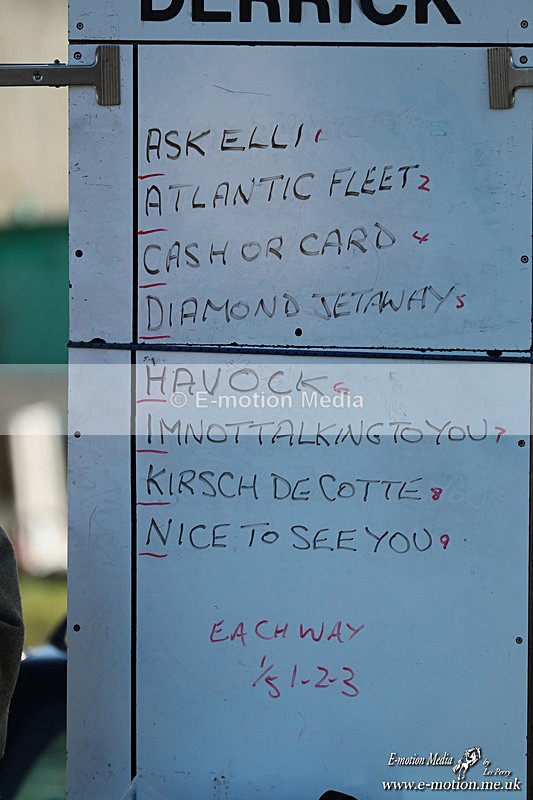 DERRICK
ASK ELLI 1
ATLANTIC FLEET 2
CASH OR CARD 4
DIAMOND JETAWAY 5
HAVOCK 6
© E-motion Media
IMNOTTALKINGTOYOU 7
KIRSCH DE COTTE 8
NICE TO SEE YOU 9
EACH WAY
1/5 1-2-3
E-motion Media
by
Les Perry
www.e-motion.me.uk